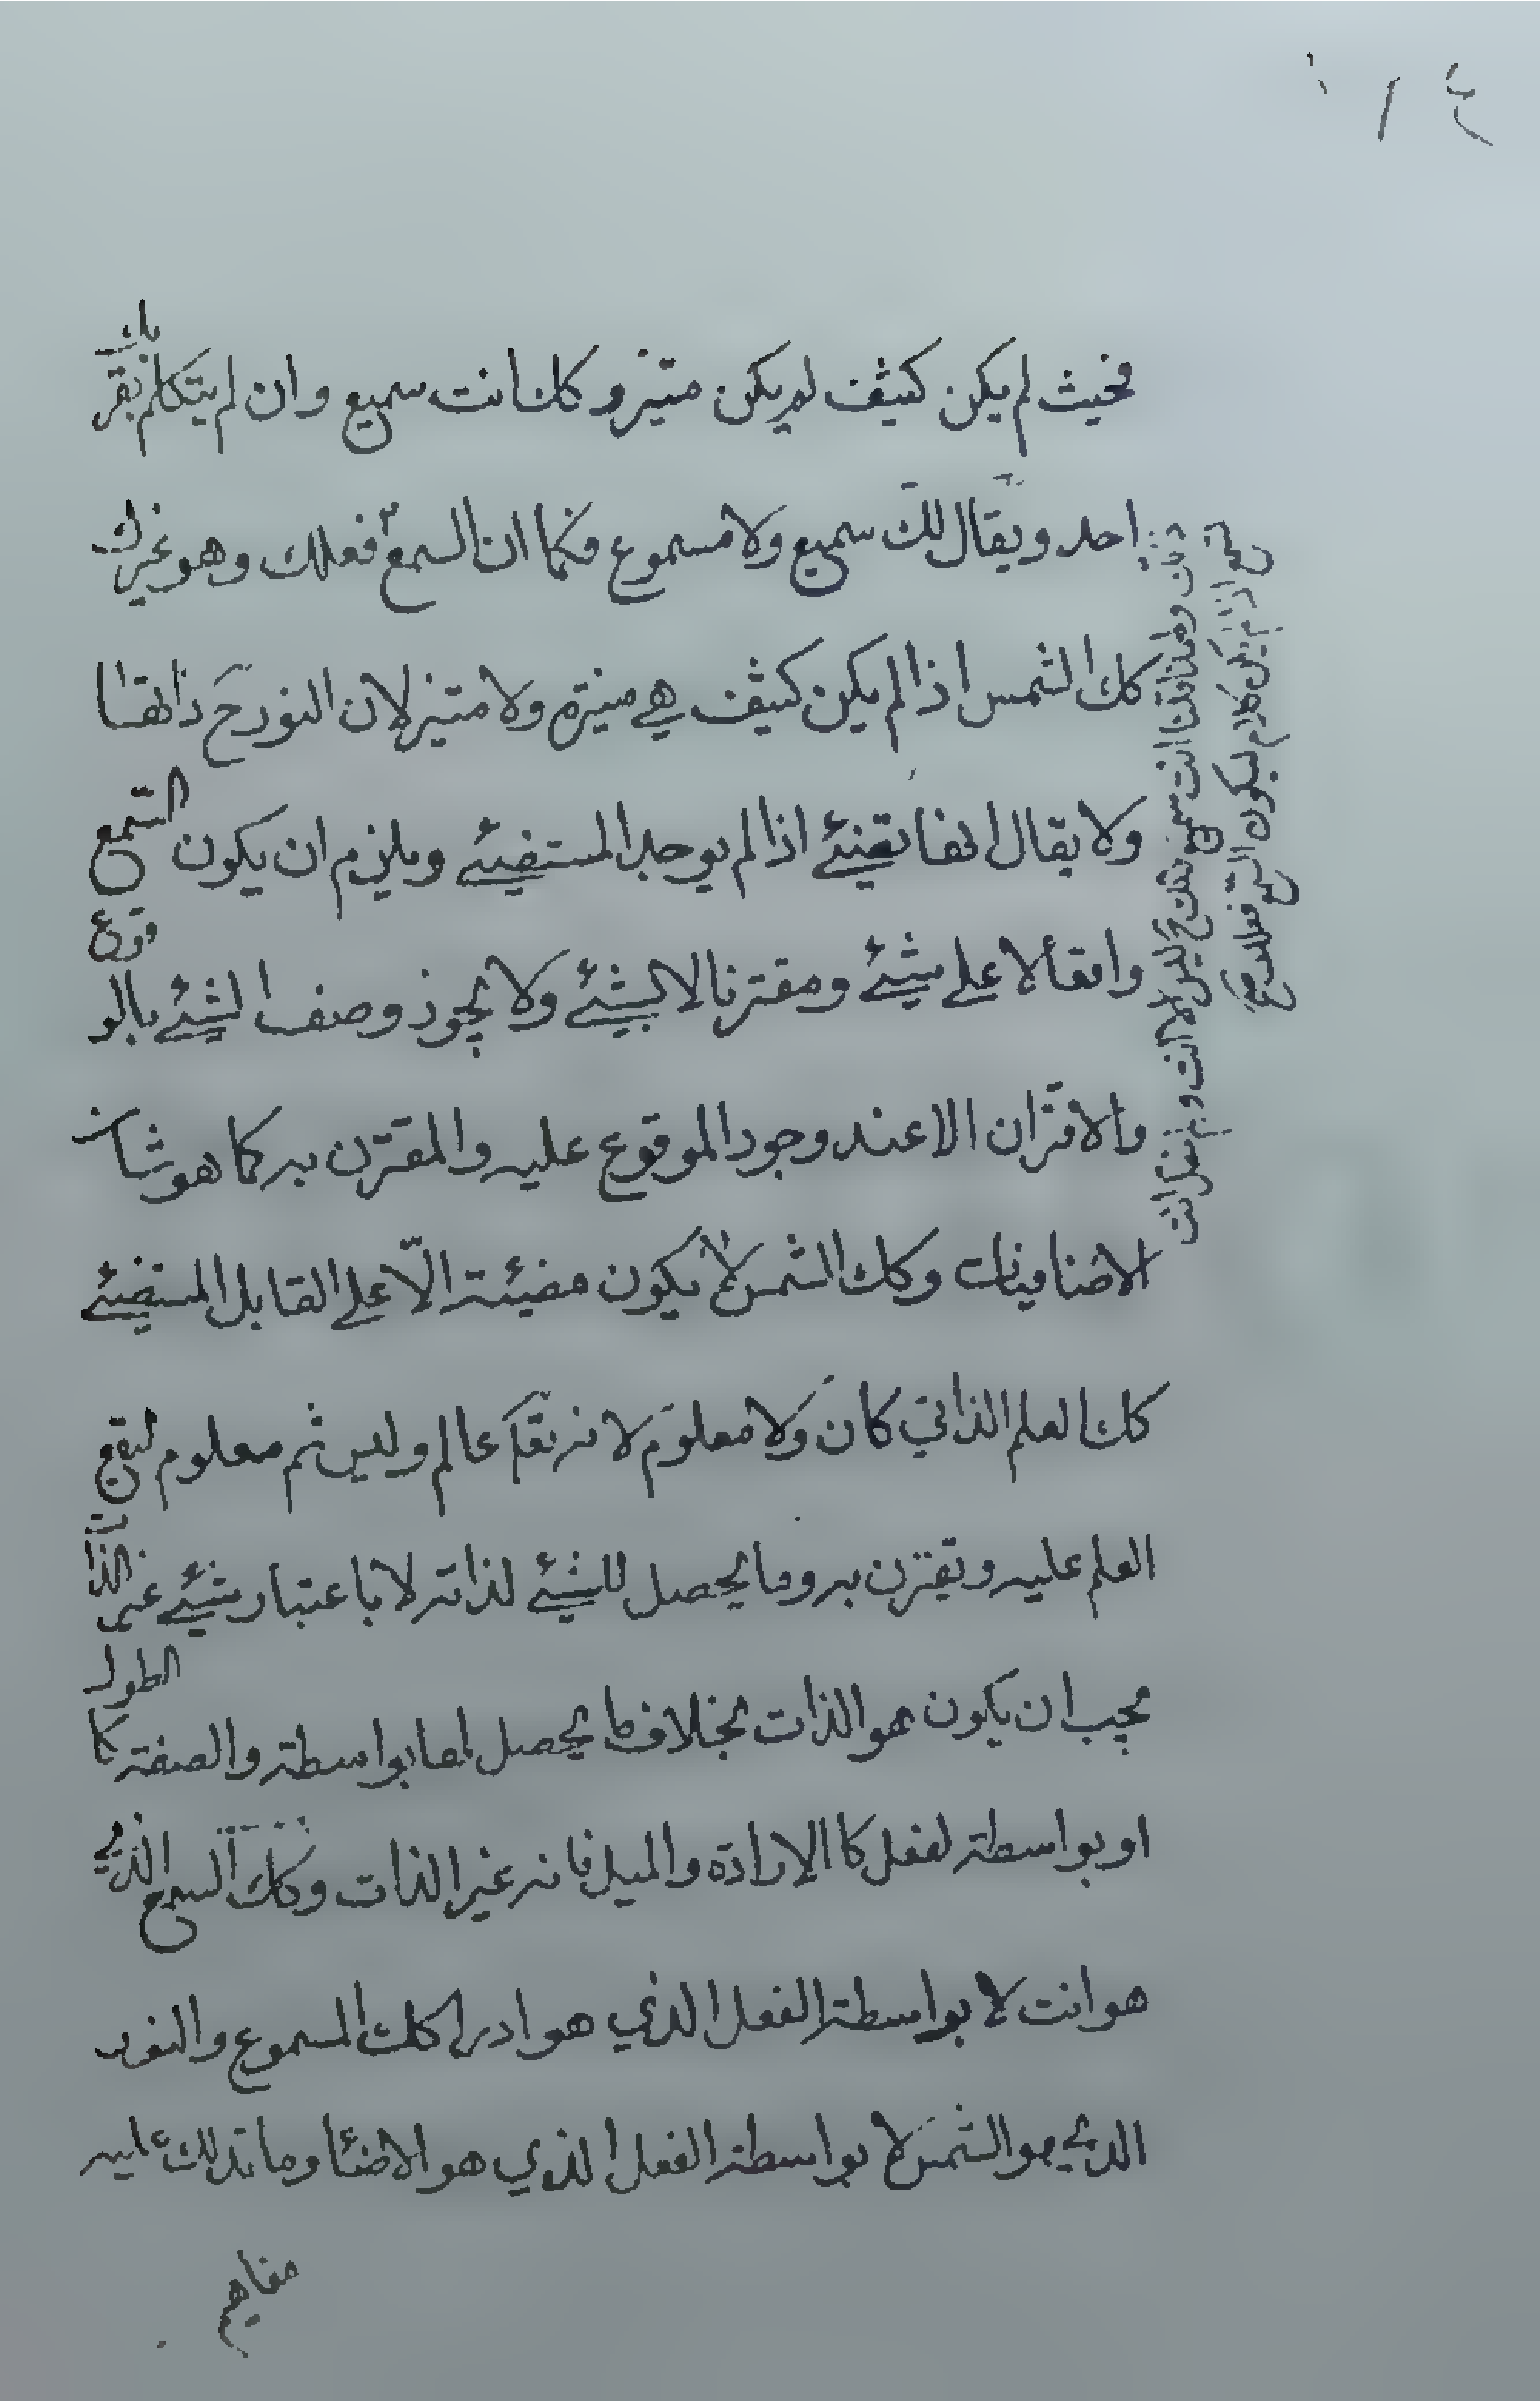 فحيث لم يكن كثيف لم يكن متيز وكك انت سميع وان لم يتكلم بقربك
احد ويقال لك سميع ولا مسموع فكما ان السمع فعلك وهو غيرك
كك الشمس اذا لم يكن كثيف هي منيرة ولا متيز لان النور ح ذاتها
ولا يقال انها تضئ اذا لم يوجد المستضيئ ويلزم ان يكون السمع
واقعا لا على شيئ ومقترنا لا بشيئ ولا يجوز وصف الشيئ بالوقوع
والاقتران الا عند وجود الموقوع عليه والمقترن به كما هو شان
الاضافيات وكك الشمس لا يكون مضيئة الّا على القابل المستضيئ
كك العلم الذاتي كان ولا معلوم لانه تعالى عالم وليس ثم معلوم ليقع
العلم عليه ويقترن به وما يحصل للشيئ لذاته لا باعتبار شيئ غير الذات
يجب ان يكون هو الذات بخلاف ما يحصل لها بواسطة والصفة كالطول
او بواسطة لفعل كا الارادة والميل فانه غير الذات وكك السمع الذي
هو انت لا بواسطة الفعل الذي هو ادراكك المسموع والنور
الذي هو الشمس لا بواسطة الفعل الذي هو الاضئا وما تدلك عليه
مفاهيم
انت سميع
اذا لم يكن كلام ليكون السمع